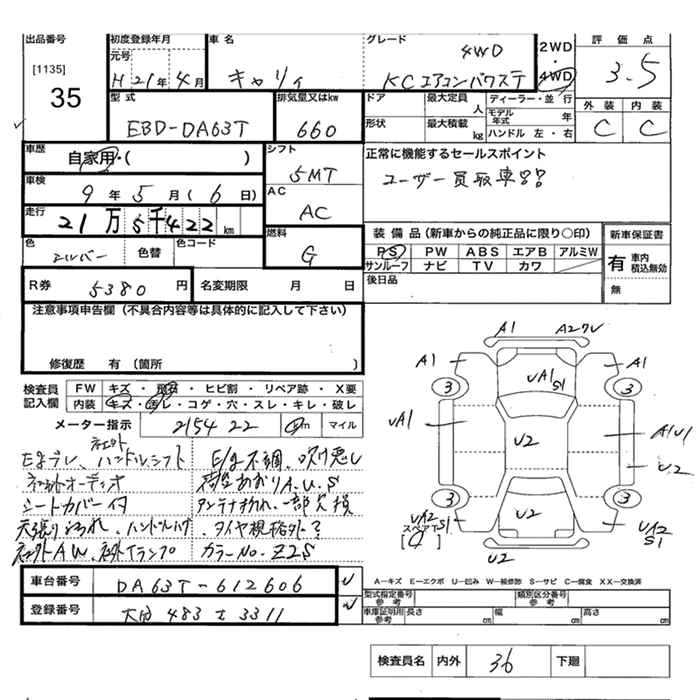 出品番号 初度登録年月 車名 グレード 2WD・4WD 評価点
[1135] 元号 4WD
35 H 21年 4月 キャリィ KCエアコンパワステ 3.5
型式 排気量又はkw ドア 最大定員 人 ディーラー・並行 外装 内装
EBD-DA63T 660 形状 最大積載 kg モデル年式 年 C C
ハンドル 左・右
車歴 自家用・( ) シフト 5MT 正常に機能するセールスポイント
車検 9年 5月 (6日) AC AC ユーザー買取車!!
走行 21万5千422 km 装備品(新車からの純正品に限り○印) 新車保証書
色 シルバー 色替 色コード 燃料 G PS PW ABS エアB アルミW 有 車内 積込無効
サンルーフ ナビ TV カワ 無
R券 5380円 名変期限 月 日 後日品
注意事項申告欄(不具合内容等は具体的に記入して下さい)
修復歴 有 (箇所 )
検査員記入欄 FW キズ・飛石・ヒビ割・リペア跡・X要
内装 キズ・汚レ・コゲ・穴・スレ・キレ・破レ
メーター指示 215422 km マイル
A1 A2 A1 UA1 S1 A1
3 3
UA1 U2 A1U1 U2
3 3
UA2 S1 スペアT U2 UA2 S1
U2
ハンドルシフト E/g不調、吹け悪し
A.U.S
シートカバー付 一部欠損
天張り汚れ、 タイヤ規格外
カラーNo. Z2S
車台番号 DA63T-612606
登録番号 大分 483 3311
A─キズ E─エクボ U─凹み W─補修跡 S─サビ C─腐食 XX─交換済
型式指定番号 参考 類別区分番号 参考
車庫証明用 参考 長さ cm 幅 cm 高さ cm
検査員名 内外 36 下廻